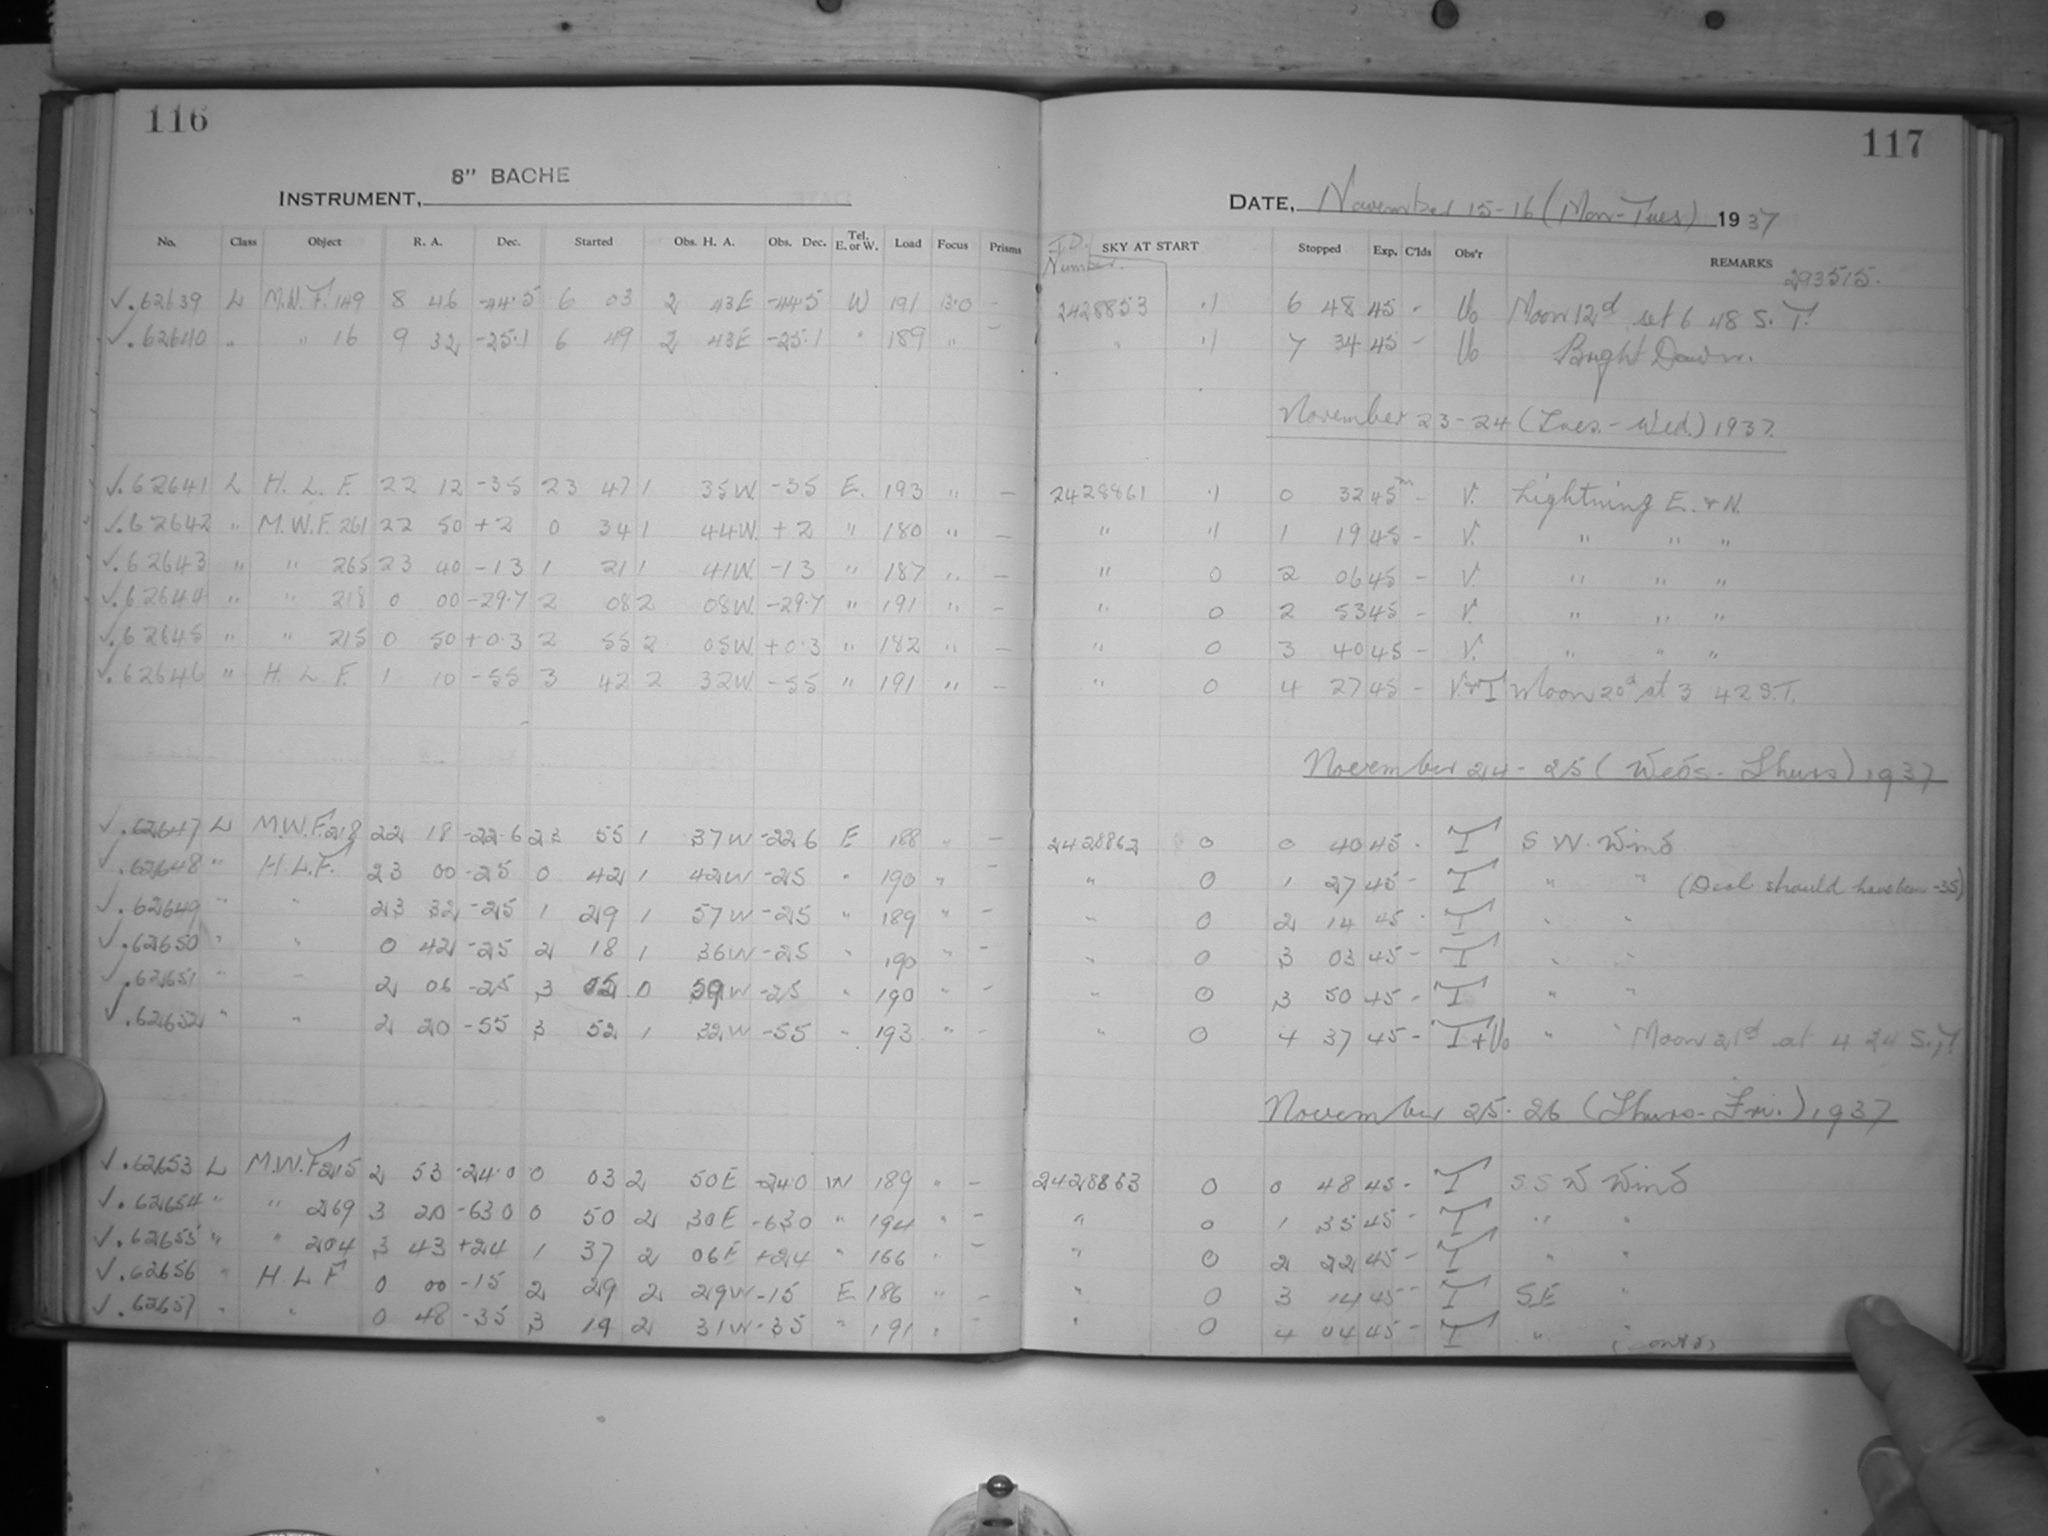 116
8" BACHE
INSTRUMENT,
No. Class Object R. A. Dec. Started Obs. H. A. Obs. Dec. Tel. E. or W. Load Focus Prisms
√.62639 L M.W.F. 149 8 46 -44.5 6 03 2 43E -44.5 W 191 13.0 -
√.62640 " " 16 9 32 -25.1 6 49 2 43E -25.1 " 189 " -
√.62641 L H. L. F. 22 12 -35 23 47 1 35W. -35 E. 193 " -
√.62642 " M.W.F. 261 22 50 +2 0 34 1 44W. +2 " 180 " -
√.62643 " " 265 23 40 -13 1 21 1 41W. -13 " 187 " -
√.62644 " " 218 0 00 -29.7 2 08 2 08W. -29.7 " 191 " -
√.62645 " " 215 0 50 +0.3 2 55 2 05W. +0.3 " 182 " -
√.62646 " H. L. F. 1 10 -55 3 42 2 32W. -55 " 191 " -
√.62647 L M.W.F. 218 22 18 -22.6 23 55 1 37W -22.6 E 188 " -
√.62648 " H.L.F. 23 00 -25 0 42 1 42W -25 " 190 " -
√.62649 " " 23 32 -25 1 29 1 57W -25 " 189 " -
√.62650 " " 0 42 -25 2 18 1 36W -25 " 190 " -
√.62651 " " 2 06 -25 3 05 0 59W -25 " 190 " -
√.62652 " " 2 20 -55 3 52 1 32W -55 " 193 " -
√.62653 L M.W.F. 215 2 53 -24.0 0 03 2 50E -24.0 W 189 " -
√.62654 " " 269 3 20 -63.0 0 50 2 30E -63.0 " 194 " -
√.62655 " " 204 3 43 +24 1 37 2 06E +24 " 166 " -
√.62656 " H. L F 0 00 -15 2 29 2 29W -15 E 186 " -
√.62657 " " 0 48 -35 3 19 2 31W -35 " 191 "
117
DATE, November 15-16 (Mon-Tues) 1937
J.D. Number. SKY AT START Stopped Exp. C'lds Obs'r REMARKS 293515.
2428853 6 48 45 - Moon 12d set 6 48 S. T.
" 7 34 45 - Bright Dawn.
November 23-24 (Tues.-Wed.) 1937.
2428861 0 32 45m - V. Lightning E. & N.
" 1 19 45 - V. " " "
" 0 2 06 45 - V. " " "
" 0 2 53 45 - V. " " "
" 0 3 40 45 - V. " " "
" 0 4 27 45 - V.+I Moon 20d at 3 42 S.T.
November 24-25 (Weds.-Thurs) 1937
2428862 0 0 40 45 - I S W. Wind
" 0 1 27 45 - I " " (Decl should have been -35)
" 0 2 14 45 - I " "
" 0 3 03 45 - I " "
" 0 3 50 45 - I " "
" 0 4 37 45 - I + " " Moon 21d at 4 24 S.T
November 25-26 (Thurs-Fri.) 1937
2428863 0 0 48 45 - I S.S W Wind
" 0 1 35 45 - I " "
" 0 2 22 45 - I " "
" 0 3 14 45 - I S.E "
" 0 4 04 45 - I " "
(contd)